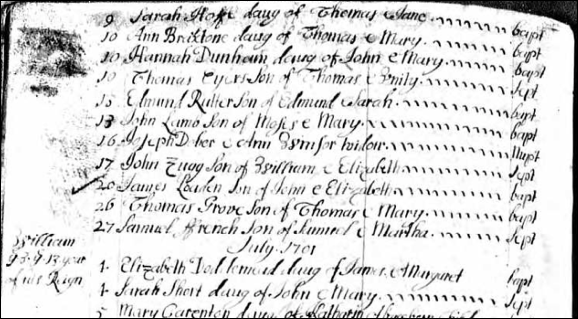 9 Sarah daug of Thomas & Jane bapt
10 Ann Braxtone daug of Thomas & Mary bapt
10 Hannah Dunham daug of John & Mary bapt
10 Thomas Eyers Son of Thomas & Unity Sept
13 Edmund Rutter Son of Edmund & Sarah bapt
13 John Lamb Son of Moses & Mary bapt
16 Joseph & Ann Winsor widow Nupt
17 John Zugg Son of William & Elizabeth Sept
20 James Loaden Son of John & Elizabeth bapt
26 Thomas Grove Son of Thomas & Mary bapt
27 Samuel ffrench Son of Samuel & Martha Sept
July 1701
William
ye 3 13 year
of his Reign
1 Elizabeth daug of James & Margaret bapt
1 Sarah Short daug of John & Mary Sept
5 Mary daug of